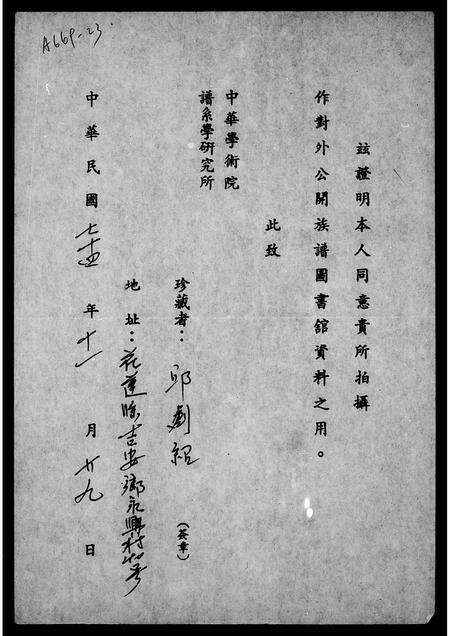 A669-23
茲證明本人同意貴所拍攝
作對外公開族譜圖書館資料之用。
此致
中華學術院
譜系學研究所
珍藏者：邱創 (簽章)
地址：花蓮縣吉安鄉永興村
中華民國七十四年十一月廿九日